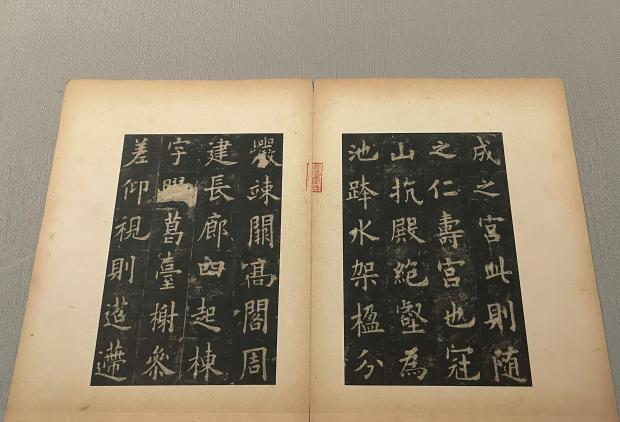 成之宮此則随
之仁壽宮也冠
山抗殿絶壑為
池跨水架楹分
巖竦闕髙閣周
建長廊四起棟
宇膠葛臺榭參
差仰視則迢遰